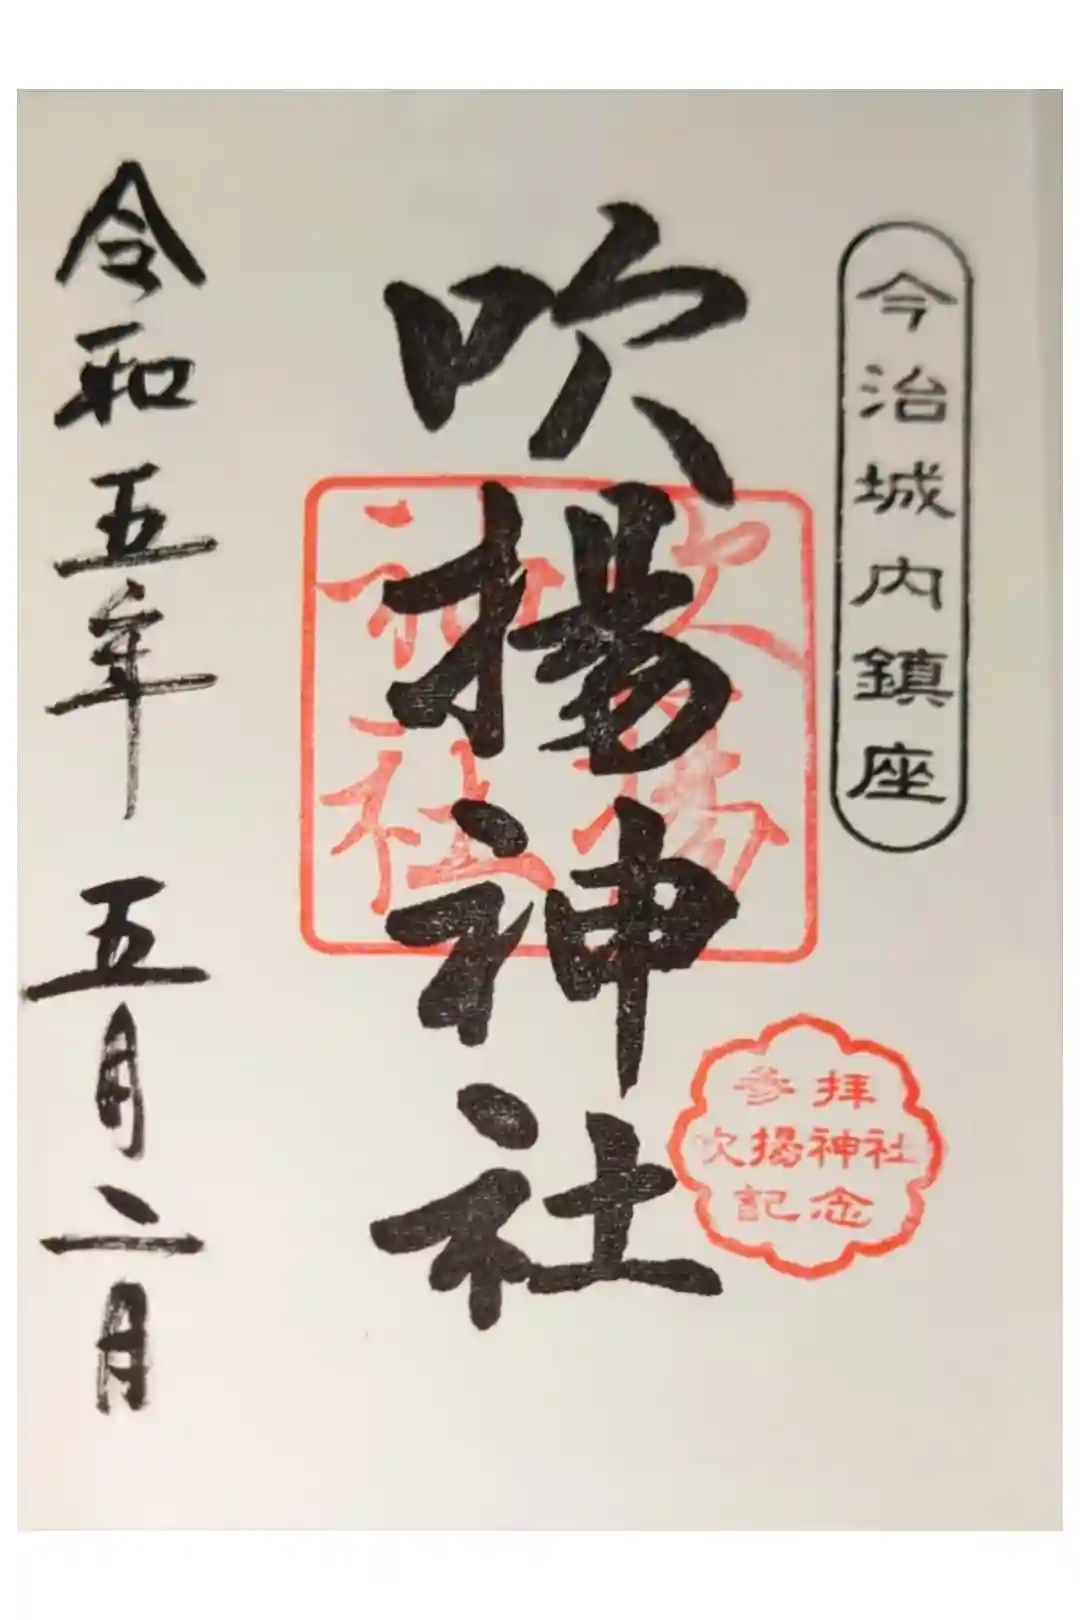 今治城内鎮座
吹揚神社
吹揚
神社
参拝
吹揚神社
記念
令和五年 五月二日